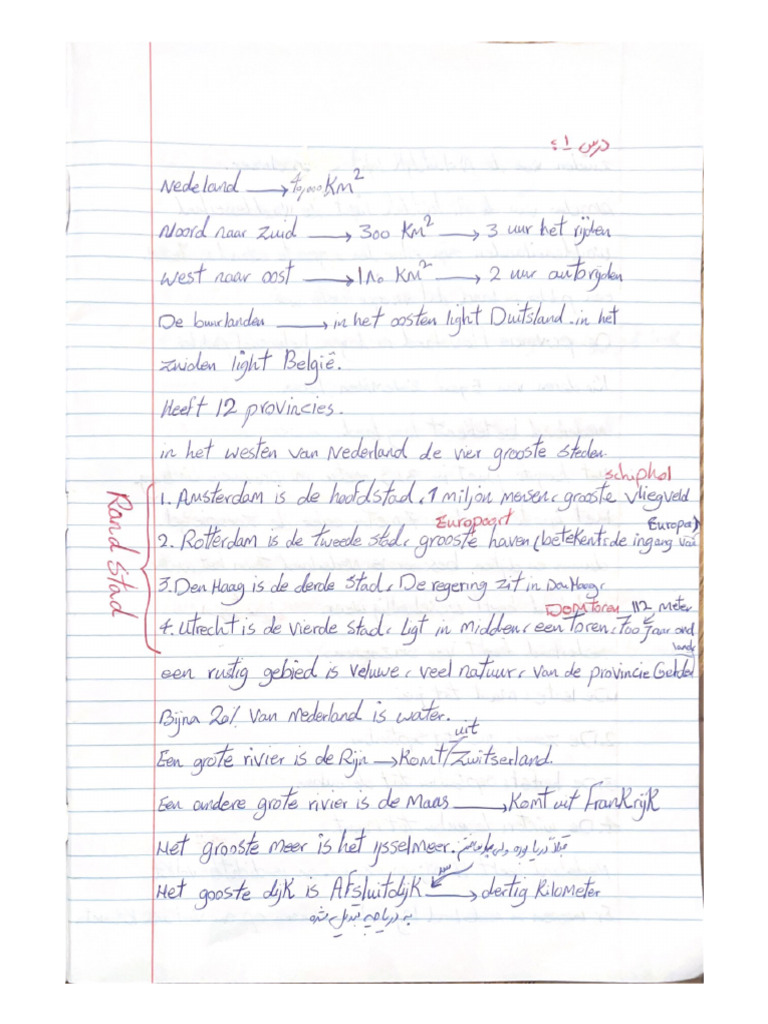 درس ۱:
Nedeland → 40,000 Km²
Noord naar zuid → 300 Km² → 3 uur het rijden
West naar oost → ۱۸۰ Km² → 2 uur autorijden
De buurlanden → in het oosten light Duitsland. in het
zuiden light België.
Heeft 12 provincies.
in het westen van Nederland de vier grooste steden.
schiphol
1. Amsterdam is de hoofdstad, 1 miljon mensen, grooste vliegveld
Europoort Europa)
2. Rotterdam is de tweede stad, grooste haven (betekent: de ingang van
3. Den Haag is de derde stad, De regering zit in Den Haag,
DOMtoren 112 meter
4. Utrecht is de vierde stad, ligt in midden, een toren, 700 jaar oud
Rand Stad
lande
een rustig gebied is veluwe, veel natuur, van de provincie Gelder
Bijna 20% van Nederland is water.
uit
Een grote rivier is de Rijn → Komt/Zwitserland.
Een andere grote rivier is de Maas → Komt uit FranKrijK
Het grooste meer is het ijsselmeer. قبلا دریا بوده ولی
Het gooste dijK is AFsluitdijK → dertig Kilometer
به دریاچه تبدیل شده